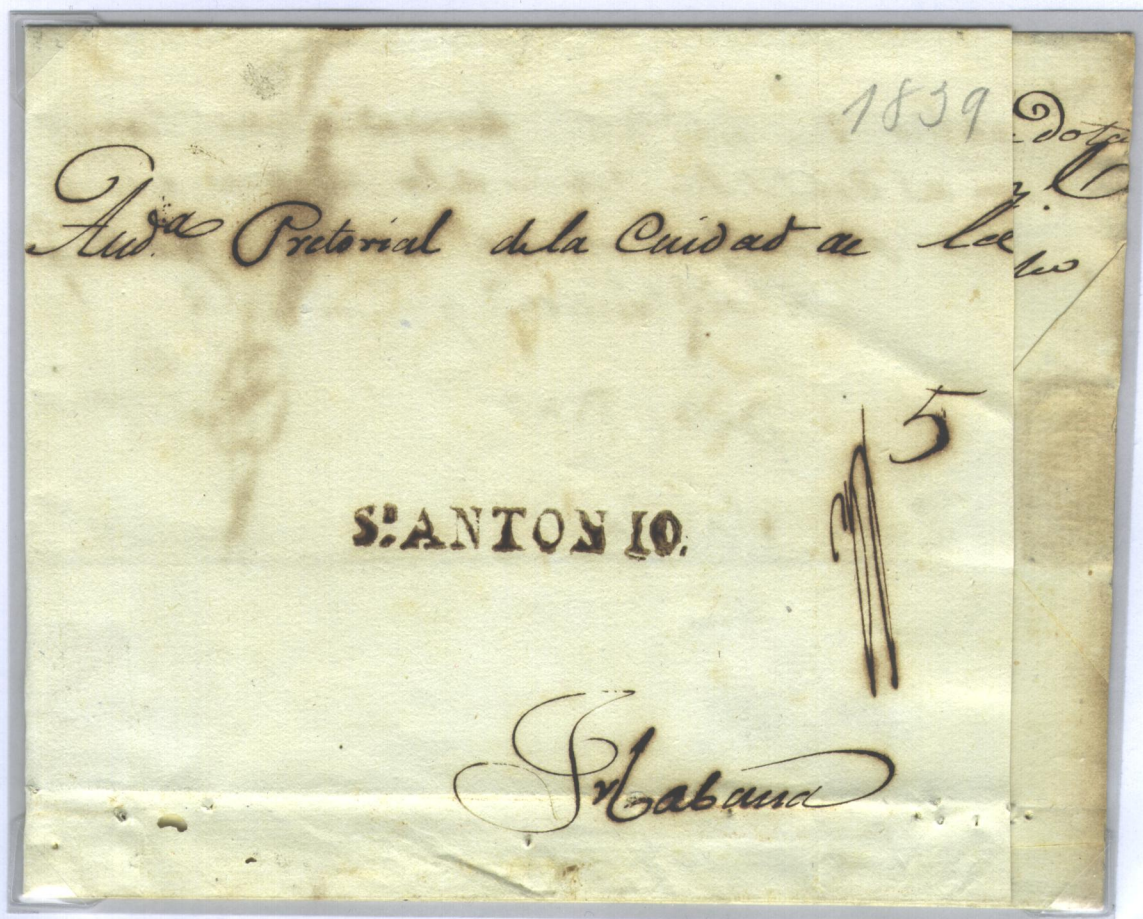 1839
Aud.ª Pretorial de la Ciudad de la
5
Sⁿ. ANTONIO.
Habana